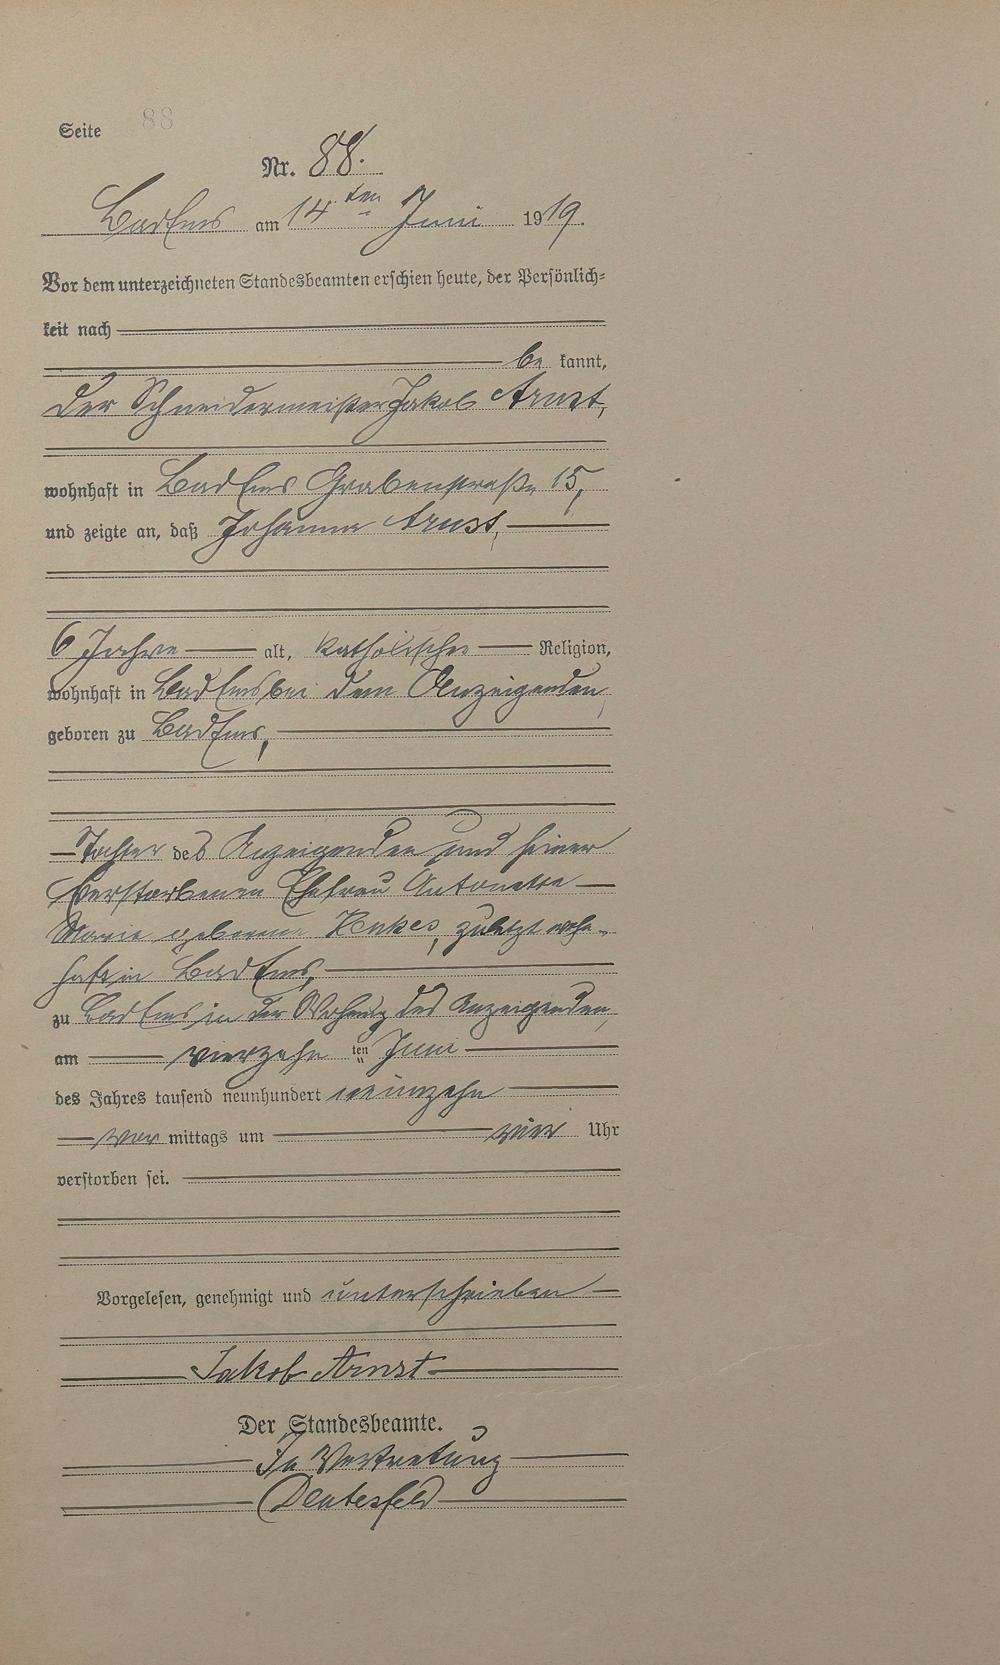 Seite 88
Nr. 88.
Bad Ems am 14ten Juni 1919.
Vor dem unterzeichneten Standesbeamten erschien heute, der Persönlich-
keit nach
be kannt,
der Schneidermeister Jakob Arnst,
wohnhaft in Bad Ems Grabenstraße 15,
und zeigte an, daß Johanna Arnst,
6 Jahre alt, katholischer Religion,
wohnhaft in Bad Ems bei dem Anzeigenden,
geboren zu Bad Ems,
Tochter des Anzeigenden und seiner
verstorbenen Ehefrau Antonetta
Maria geborene zuletzt wohn-
haft in Bad Ems,
zu Bad Ems in der Wohnung des Anzeigenden,
am vierzehn ten Juni
des Jahres tausend neunhundert neunzehn
vor mittags um vier Uhr
verstorben sei.
Vorgelesen, genehmigt und unterschrieben
Jakob Arnst
Der Standesbeamte.
In Vertretung